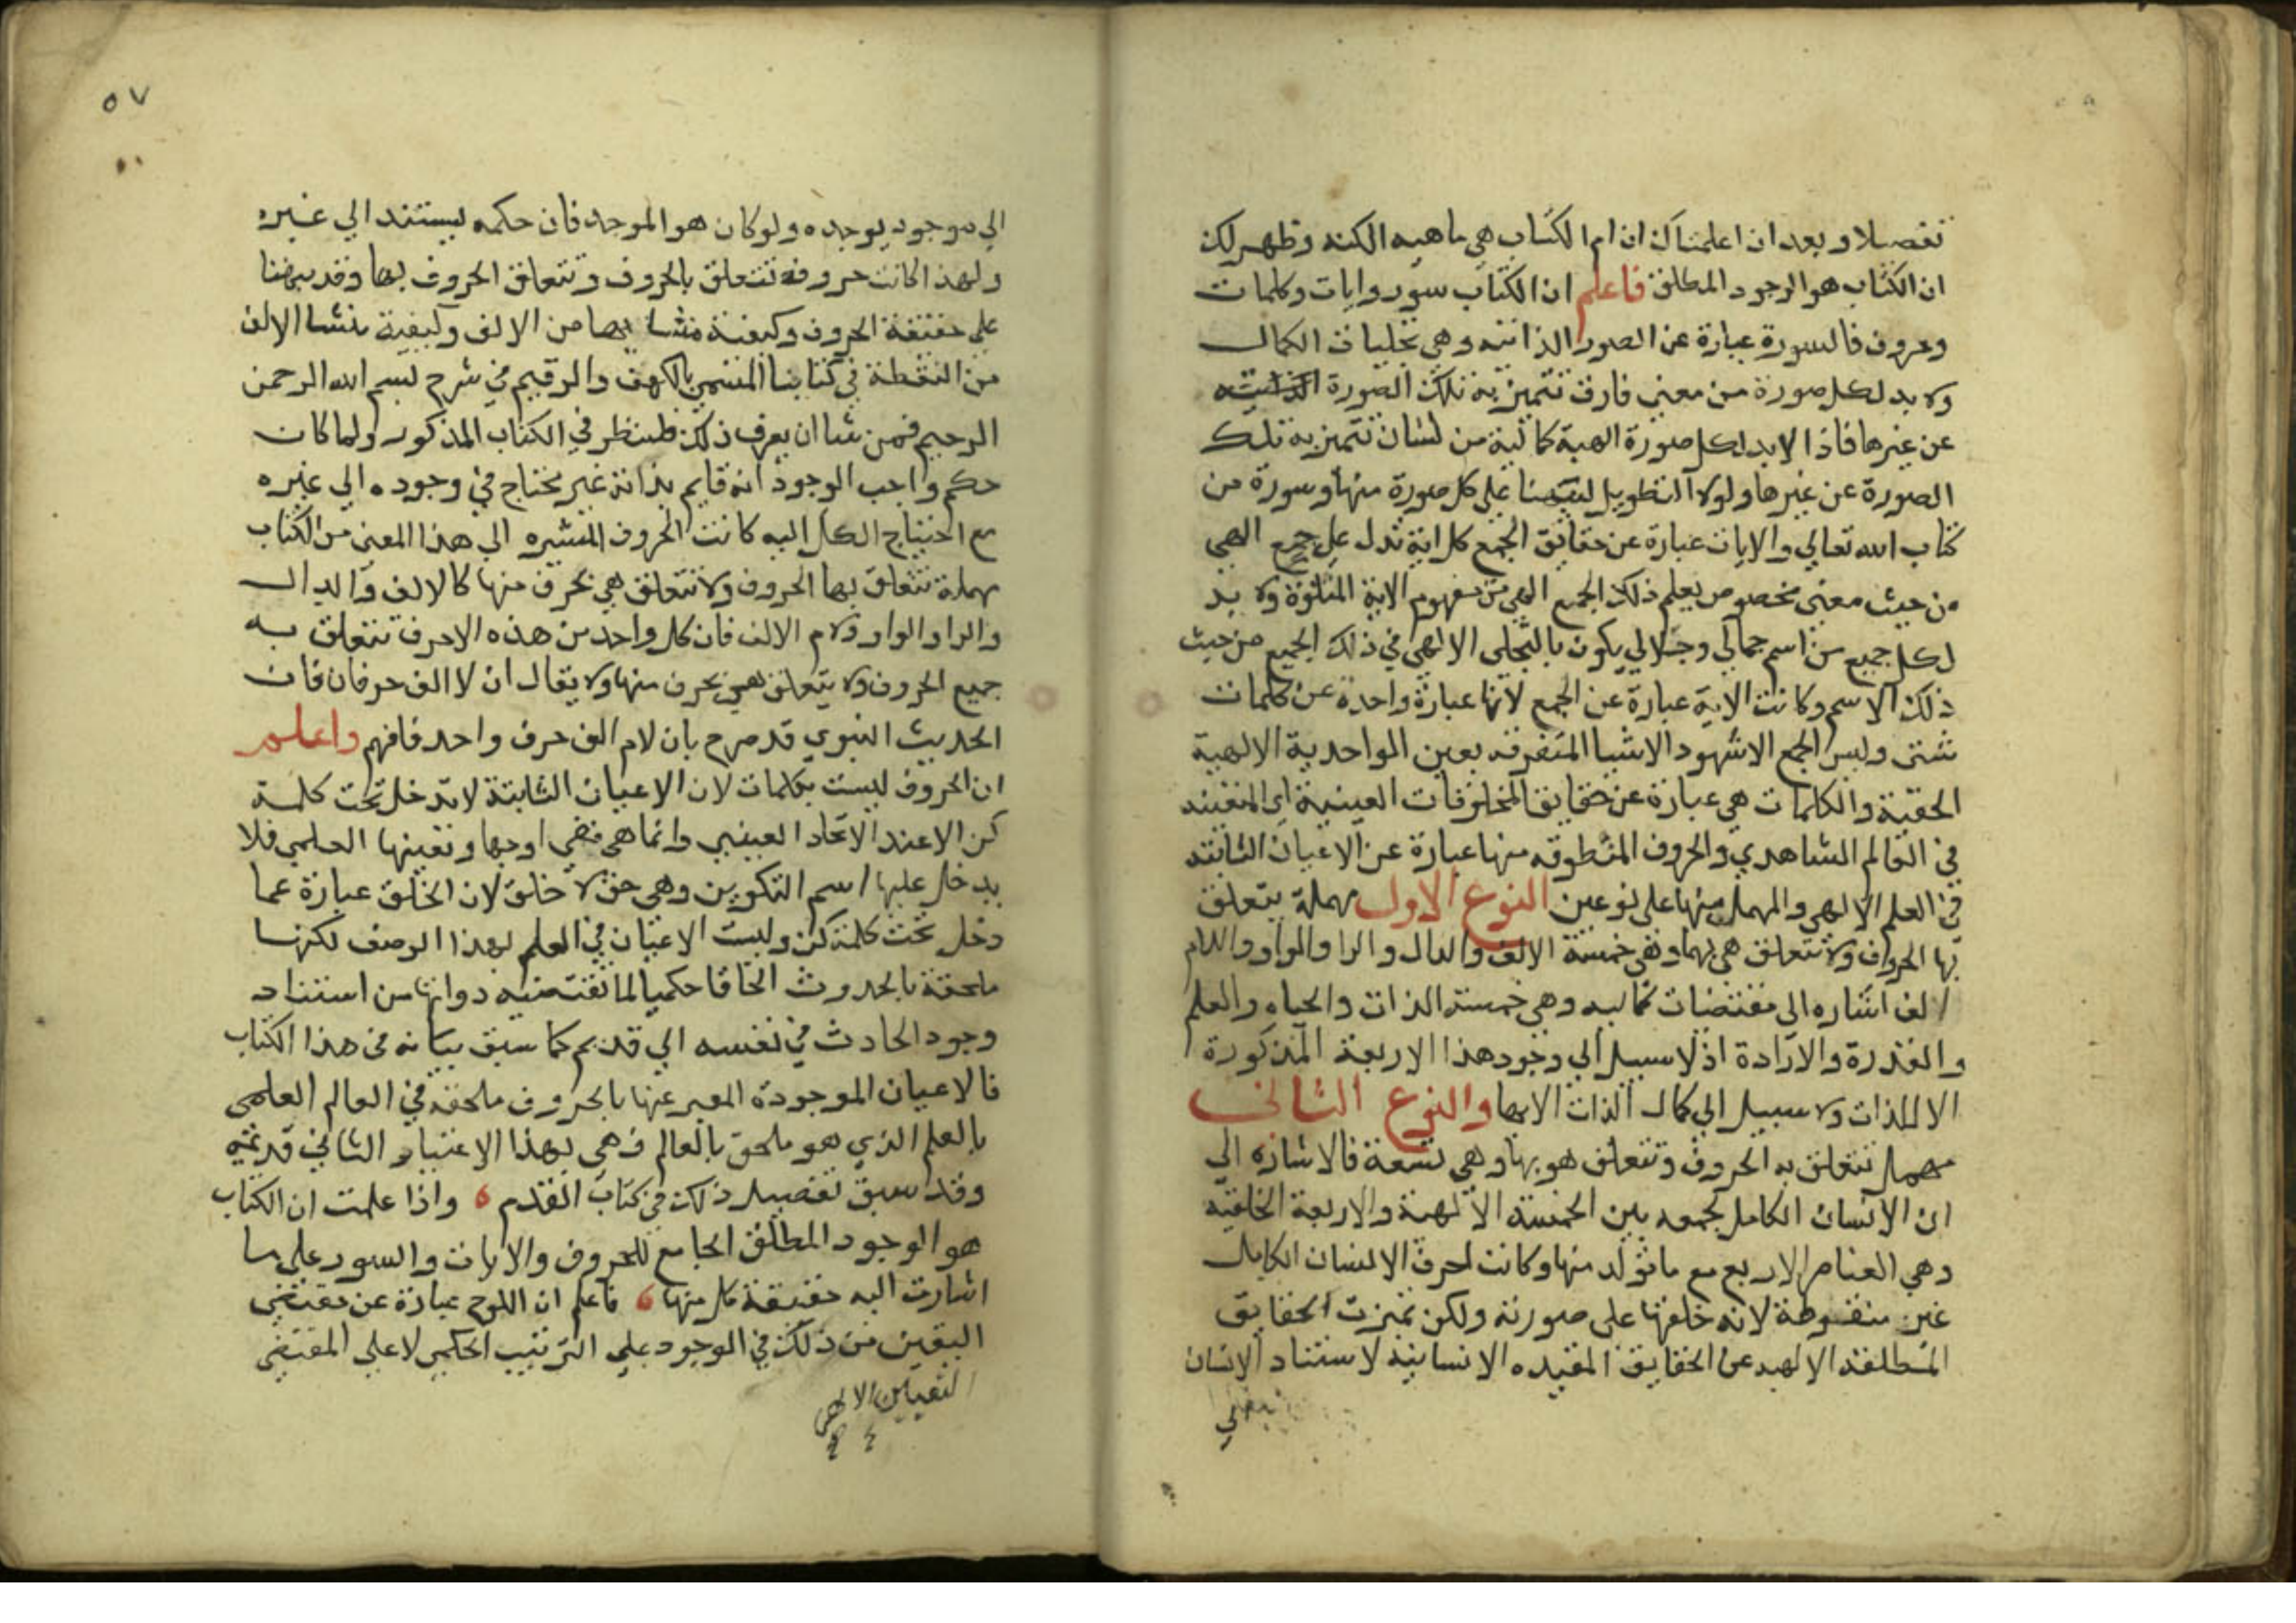 تفصيلا وبعد ان اعلمناك ان ام الكتاب هي ماهيه الكنه وظهر لك
ان الكتاب هو الوجود المطلق فاعلم ان الكتاب سور وايات وكلمات
وحروف فالسورة عبارة عن الصور الذاتيه وهي تجليات الكمال
ولا بد لكل صورة من معني فارق تتميز به تلك الصورة
عن غيرها فاذا لابد لكل صورة الهية كمالية من لشان تتميز به تلك
الصورة عن غيرها ولولا التطويل لنبهنا علي كل صورة منها وسورة من
كتاب الله تعالي والايات عبارة عن حقايق الجمع كل اية تدل علي جمع الهي
من حيث معني مخصوص يعلم ذلك الجمع الهي من مفهوم الاية المتلوة ولا بد
لكل جمع من اسم جمالي وجلالي يكون بالتجلي الالهي في ذلك الجمع من حيث
ذلك الاسم وكانت الاية عبارة عن الجمع لانها عبارة واحدة عن كلمات
شتي وليس الجمع الا شهود الاشيا المتفرقه بعين الواحدية الالهية
الحقية والكلمات هي عبارة عن حقايق المخلوقات العينية اي المتعينه
في العالم الشاهدي والحروف المنطوقه منها عبارة عن الاعيان الثابته
في العلم الالهي والمهمل منها علي نوعين النوع الاول مهملة تتعلق
بها الحروف ولا تتعلق هي بها وهي خمسة الالف والدال والرا والواو واللام
الف اشاره الي مقتضات كماليه وهي خمسة الذات والحياه والعلم
والقدرة والارادة اذ لا سبيل الي وجود هذا الاربعة المذكورة
الا للذات ولا سبيل الي كمال الذات الا بها والنوع الثاني
مهمل تتعلق به الحروف وتتعلق هو بها وهي تسعة فالاشاره الي
ان الانسان الكامل لجمعه بين الخمسة الالهية والاربعة الخلقيه
وهي العناصر الاربع مع ما تولد منها وكانت احرف الانسان الكامل
غير منقوطة لانه خلقها علي صورته ولكن تميزت الحقايق
المطلقه الالهيه عن الحقايق المقيده الانسانية لاستناد الانسان
٥٧
الي موجود يوجده ولو كان هو الموجد فان حكمه يستند الي غيره
ولهذا كانت حروفه تتعلق بالحروف وتتعلق الحروف بها وقد نبهنا
علي حقيقة الحروف وكيفية منشا يها من الالف وكيفية منشا الالف
من النقطة في كتابنا المسمي بالكهف والرقيم في شرح بسم الله الرحمن
الرحيم فمن شا ان يعرف ذلك فلينظر في الكتاب المذكور ولما كان
حكم واجب الوجود انه قايم بذاته غير محتاج في وجوده الي غيره
مع احتياج الكل اليه كانت الحروف المشيره الي هذا المعني من الكتاب
مهملة تتعلق بها الحروف ولا تتعلق هي بحرف منها كالالف والدال
والرا والواو ولام الالف فان كل واحد من هذه الاحرف تتعلق به
جميع الحروف ولا يتعلق هي بحرف منها ولا يقال ان لا الف حرفان فان
الحديث النبوي قد صرح بان لام الف حرف واحد فافهم واعلم
ان الحروف ليست بكلمات لان الاعيان الثابتة لا تدخل تحت كلمة
كن الا عند الاتحاد العيني وانما هي في اوجها وتعينها العلمي فلا
يدخل عليها اسم التكوين وهي حق لا خلق لان الخلق عبارة عما
دخل تحت كلمة كن وليست الاعيان في العلم بهذا الوصف لكنها
ملحقة بالحدوث الحاقا حكميا لما تقتضيه ذواتها من استناد
وجود الحادث في نفسه الي قديم كما سبق بيانه في هذا الكتاب
فالاعيان الموجودة المعبر عنها بالحروف ملحقه في العالم العلمي
بالعلم الذي هو ملحق بالعالم فهي بهذا الاعتبار الثاني قديمه
وقد سبق تفصيل ذلك في كتاب القدم ، واذا علمت ان الكتاب
هو الوجود المطلق الجامع للحروف والايات والسور علي ما
اشارت اليه حقيقة كل منها ، فاعلم ان اللوح عبارة عن مقتضي
اليقين من ذلك في الوجود علي الترتيب الحكمي لا علي المقتضي
الالهي